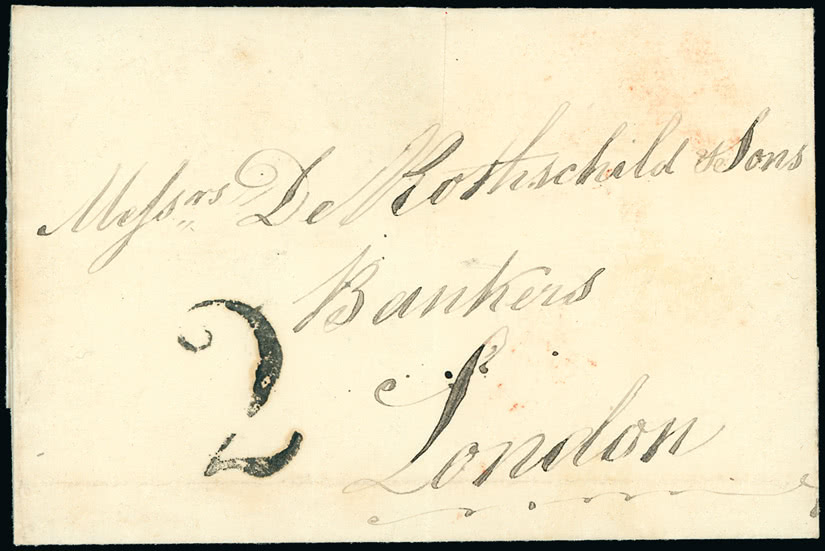 Messrs De Rothschild & Sons
Bankers
2
London